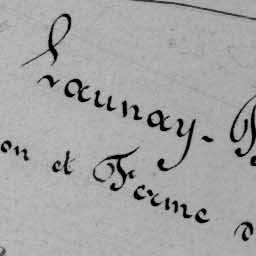 Launay-
on et Ferme